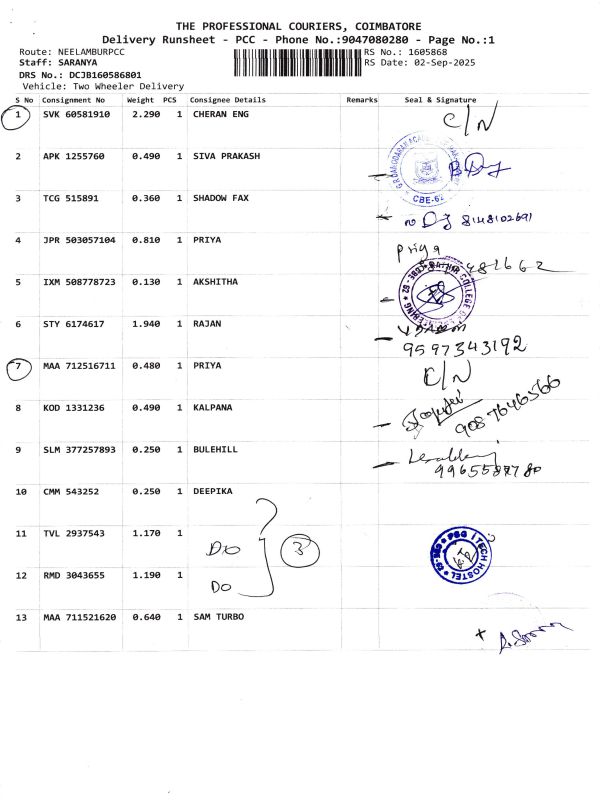 THE PROFESSIONAL COURIERS, COIMBATORE
Delivery Runsheet - PCC - Phone No.:9047080280 - Page No.:1
Route: NEELAMBURPCC RS No.: 1605868
Staff: SARANYA RS Date: 02-Sep-2025
DRS No.: DCJB160586801
Vehicle: Two Wheeler Delivery
S No Consignment No Weight PCS Consignee Details Remarks Seal & Signature
1 SVK 60581910 2.290 1 CHERAN ENG C/N
2 APK 1255760 0.490 1 SIVA PRAKASH
CBE-62
3 TCG 515891 0.360 1 SHADOW FAX
8148102691
4 JPR 503057104 0.810 1 PRIYA Priya
5 IXM 508778723 0.130 1 AKSHITHA
6 STY 6174617 1.940 1 RAJAN
9597343192
7 MAA 712516711 0.480 1 PRIYA C/N
8 KOD 1331236 0.490 1 KALPANA
9087646566
9 SLM 377257893 0.250 1 BULEHILL
10 CMM 543252 0.250 1 DEEPIKA
11 TVL 2937543 1.170 1 Do 3 PSG iTECH HOSTEL
12 RMD 3043655 1.190 1 Do
13 MAA 711521620 0.640 1 SAM TURBO